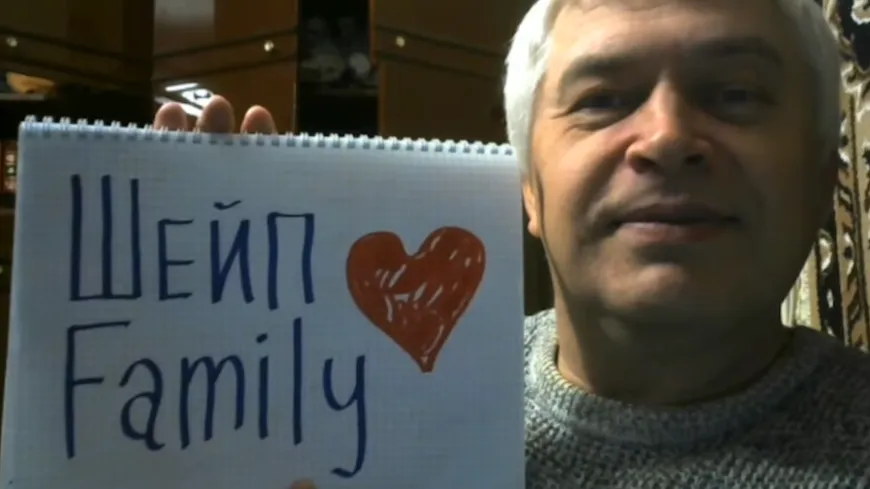 Шейп
Family